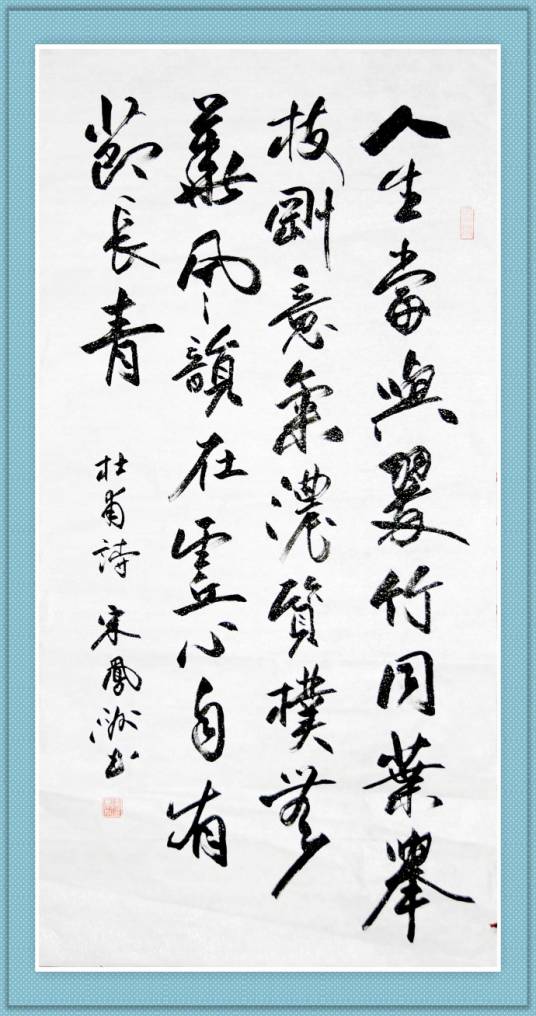 人生當與翠竹同葉舉
枝剛意氣濃質樸無
華風韻在虛心自有
節長青
杜甫詩 宋鳳洲书